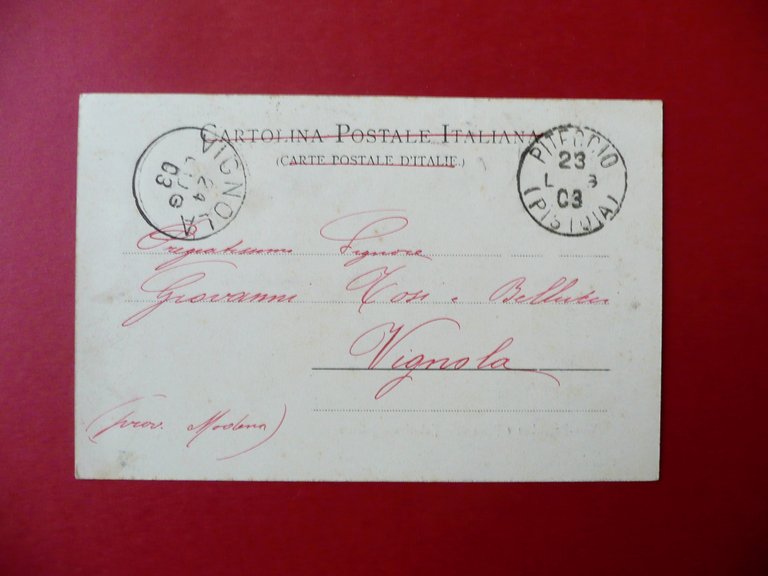 CARTOLINA POSTALE ITALIANA
(CARTE POSTALE D'ITALIE.)
VIGNOLA
24
03
PITEGLIO
23
03
(PISTOIA)
Pregiatissimo Signore
Giovanni Tosi e Bellucci
Vignola
(prov. Modena)